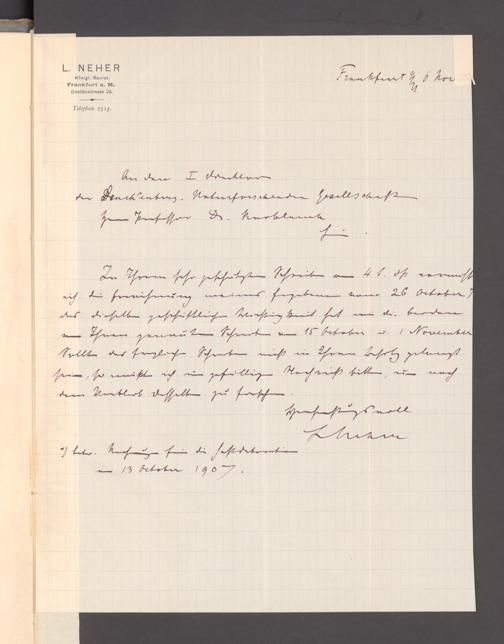 L. NEHER
Königl. Baurat
Frankfurt a. M.
Goethestrasse 34.
Telephon 1515.
Frankfurt a/M 6 Nov
An den I Direktor
der Senckenberg. Naturforschenden Gesellschaft
Herrn Professor Dr. Knoblauch
Hier.
In Ihrem sehr geschätzten Schreiben vom 4 l. Mts vermisse
ich die Erwähnung meines Ergebenen vom 26 October
das dieselbe geschäftliche Wichtigkeit hat wie die beiden
in Ihrem genannten Schreiben vom 15 October u. 1 November
Sollte das fragliche Schreiben nicht in Ihren Besitz gelangt
sein, so müsste ich um gefällige Nachricht bitten, um nach
dem Verbleib desselben zu forschen.
Hochachtungsvoll
L Neher
*) betr. Rechnung für die Festdekoration
am 13 October 1907.